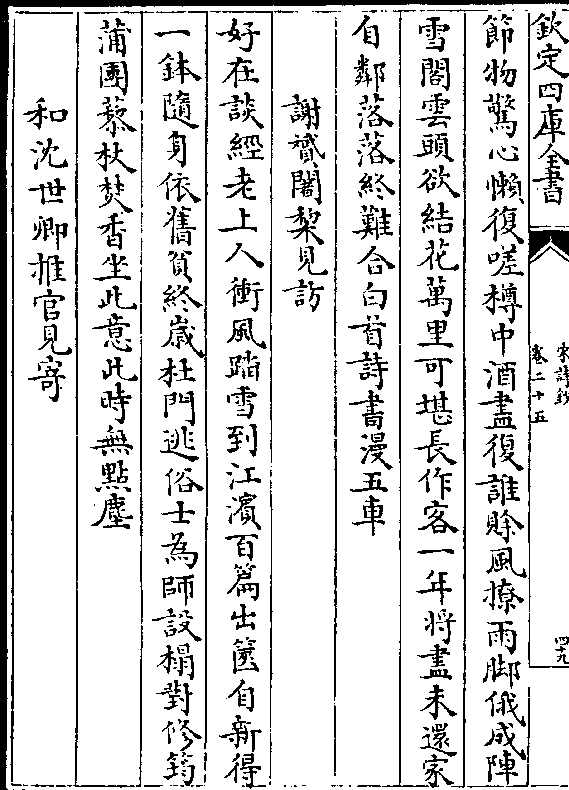 欽定四庫全書
宋詩鈔
卷二十五
四十九
節物驚心懶復嗟樽中酒盡復誰賒風撩雨脚俄成陣
雪閣雲頭欲結花萬里可堪長作客一年將盡未還家
自鄰落落終難合白首詩書漫五車
謝贇闍棃見訪
好在談經老上人衝風踏雪到江濱百篇出篋自新得
一鉢隨身依舊貧終歲杜門逃俗士為師設榻對修筠
蒲團藜杖焚香坐此意此時無點塵
和沈世卿推官見寄